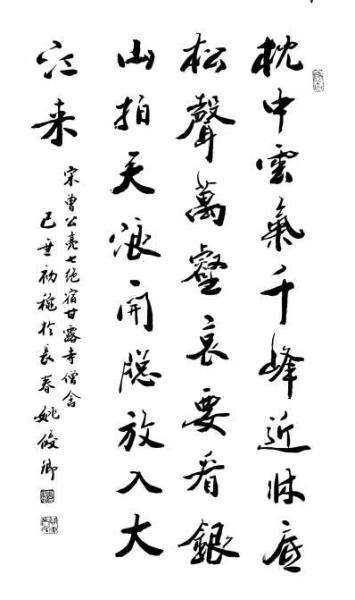 枕中雲氣千峰近牀底
松聲萬壑哀要看銀
山拍天浪開牕放入大
江来
宋曾公亮七絕宿甘露寺僧舍
己丑初穐於長春姚俊卿